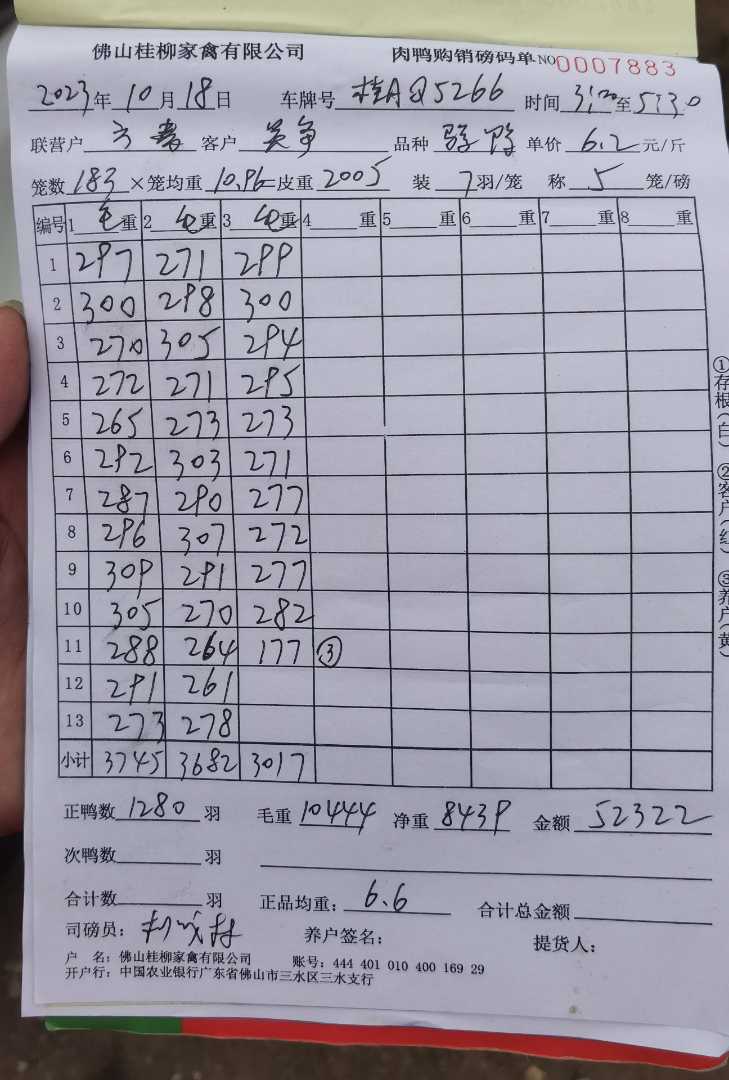 佛山桂柳家禽有限公司 肉鸭购销磅码单 NO 0007883
2023年10月18日 车牌号 桂AQ5266 时间 3:00至5:30
联营户 客户 吴争 品种 单价 6.2 元/斤
笼数 183 ×笼均重 10.96=皮重 2005 装 7羽/笼 称 5 笼/磅
编号 1 毛重 2 毛重 3 毛重 4 重 5 重 6 重 7 重 8 重
1 297 271 299
2 300 298 300
3 270 305 294
4 272 271 295
5 265 273 273
6 292 303 271
7 287 290 277
8 296 307 272
9 309 291 277
10 305 270 282
11 288 264 177 ③
12 291 261
13 273 278
小计 3745 3682 3017
正鸭数 1280 羽 毛重 10444 净重 8439 金额 52322
次鸭数 羽
合计数 羽 正品均重: 6.6 合计总金额
司磅员: 养户签名: 提货人:
户 名: 佛山桂柳家禽有限公司 账号: 444 401 010 400 169 29
开户行: 中国农业银行广东省佛山市三水区三水支行
①存根(白) ②客户(红) ③养户(黄)